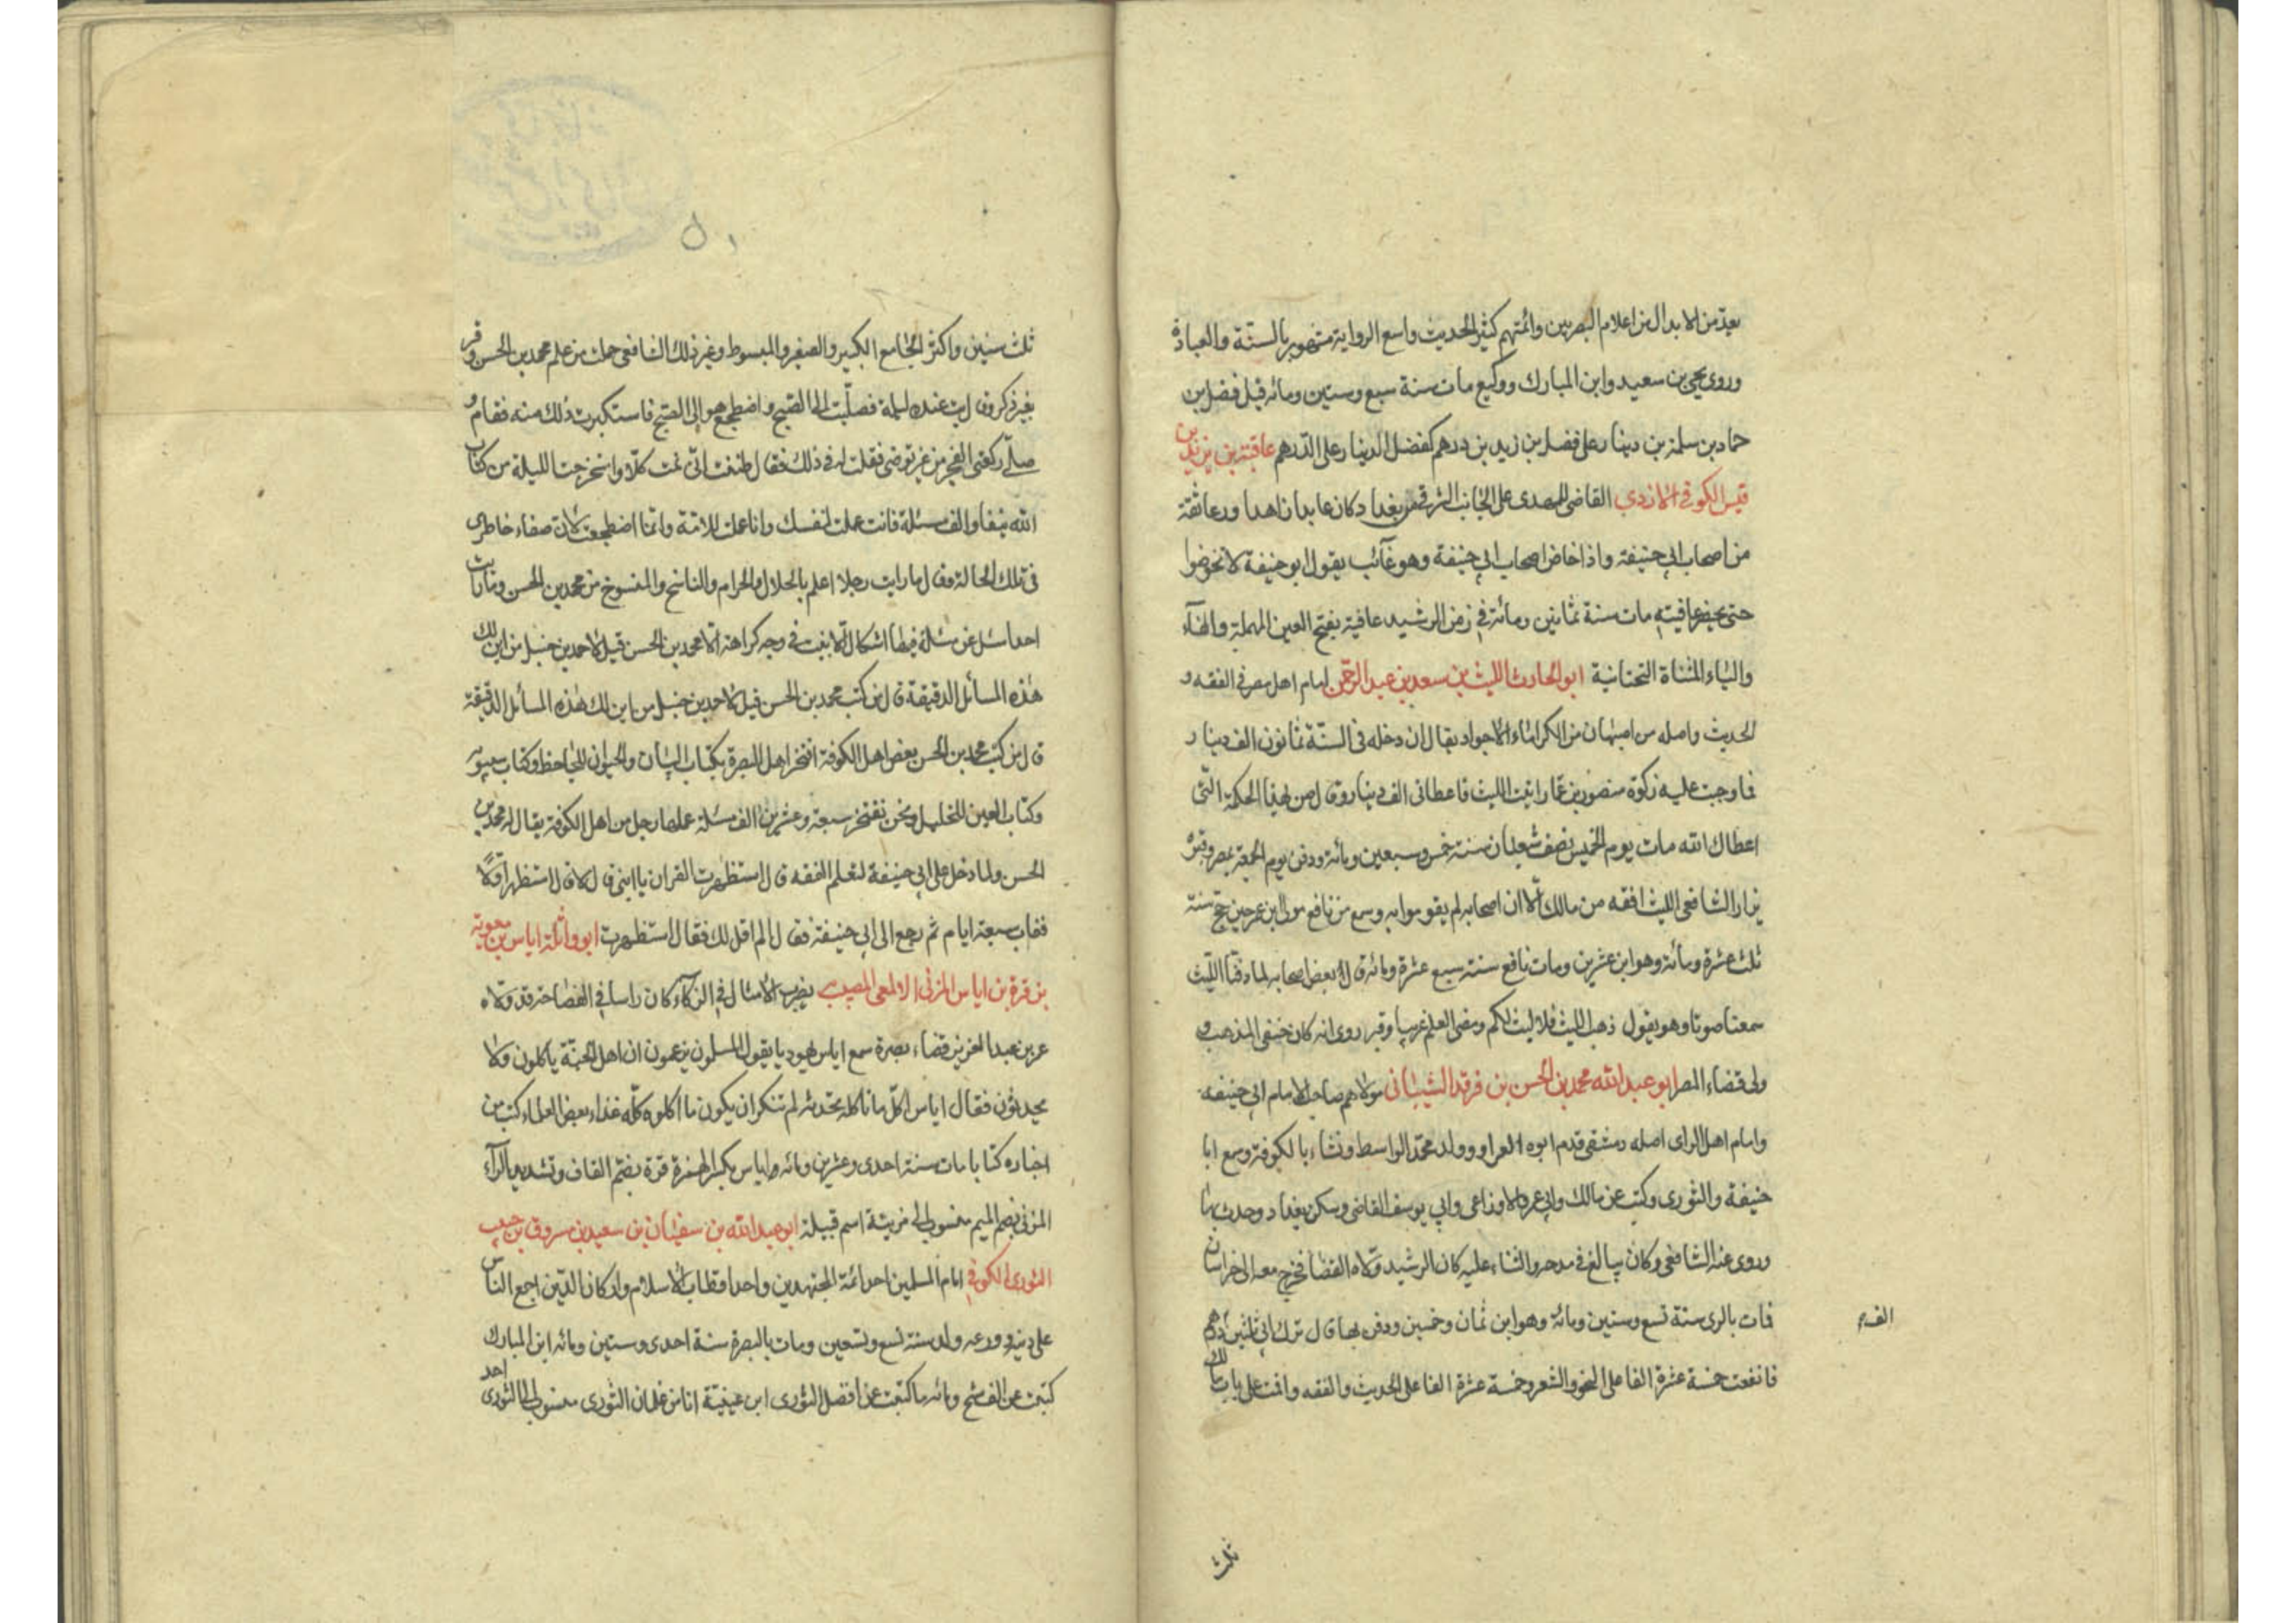 يعد من الابدال من اعلام البصريين وائمتهم كثير الحديث واسع الرواية مشهور بالسنة والعبادة
وروى يحيى بن سعيد وابن المبارك ووكيع مات سنة سبع وستين ومائه قيل فضل بن
حماد بن سلمة بن دينار على فضل بن زيد بن درهم كفضل الدينار على الدرهم عافية بن يزيد بن
قيس الكوفي الازدي القاضي للمهدى على الجانب الشرقي من بغداد كان عابدا زاهدا ورعا ثقة
من اصحاب ابي حنيفة واذا خاض اصحاب ابي حنيفة وهو غآئب يقول ابو حنيفة لا تخوضوا
حتى يحضر عافيته مات سنة ثمانين ومائة في زمن الرشيد عافية بفتح العين المهملة والفآء
والياء المثناة التحتانية ابو الحارث الليث بن سعد بن عبد الرحمن امام اهل مصر في الفقه و
الحديث واصله من اصبهان من الكرماء الاجواد يقال ان دخله في السنة ثمانون الف دينار
فما وجبت عليه زكوة منصور بن عمار اتيت الليث فاعطانى الف دينار وقال صن بهذا الحكمة التى
اعطاك الله مات يوم الخميس نصف شعبان سنة خمس وسبعين ومائة ودفن يوم الجمعة بمصر وقبره
يزار الشافعي الليث افقه من مالك الا ان اصحابه لم يقوموا به وسمع من نافع مولى ابن عمر حين حج سنة
ثلث عشرة ومائة وهو ابن عشرين ومات نافع سنة سبع عشرة ومائة قال بعض اصحابه لما دفنا الليث
سمعنا صوتا وهو يقول ذهب الليث فلا ليث لكم ومضى العلم غريبا وقبر روى انه كان حنفي المذهب و
ولى قضاء المصر ابو عبد الله محمد بن الحسن بن فرقد الشيباني مولاهم صاحب الامام ابي حنيفة
وامام اهل الراى اصله دمشقي قدم ابوه العراق وولد محمد الواسط ونشاء بالكوفة وسمع ابا
حنيفة والثورى وكتب عن مالك وابي عمرو الاوزاعى وابي يوسف القاضي وسكن بغداد وحدث بها
وروى عنه الشافعي وكان يبالغ في مدحه والثناء عليه كان الرشيد ولاه القضا فخرج معه الى خراسان
فمات بالرى سنة تسع وستين ومائة وهو ابن ثمان وخمسين ودفن بها قال ترك ابي ثلثين درهم
الف
فانفقت خمسة عشرة الفا على النحو والشعر وخمسة عشرة الفا على الحديث والفقه واقمت على باب مالك
ثلث
ثلث سنين واكثر الجامع الكبير والصغير والمبسوط وغير ذلك الشافعي حملت من علم محمد بن الحسن وقر
بعير ذكر وقال بت عنده ليلة فصليت الى الصبح واضطجع هو الى الصبح فاستكبرت ذلك منه فقام و
صلى ركعتي الفجر من غير توضى فقلت له في ذلك فقال اظننت انى نمت كلا واستخرجت الليلة من كتاب
الله نيفا والف مسئلة فانت عملت لنفسك وانا عملت للامة وانما اضطجعت لان صفاء خاطرى
في تلك الحالة وقال ما رايت رجلا اعلم بالحلال والحرام والناسخ والمنسوخ من محمد بن الحسن وما رايت
احدا سئل عن مسئلة فيها اشكال الا تبينت في وجهه كراهة الا محمد بن الحسن قيل لاحمد بن حنبل من اين لك
هذه المسائل الدقيقة قال من كتب محمد بن الحسن قيل لاحمد بن حنبل من اين لك هذه المسائل الدقيقة
قال من كتب محمد بن الحسن بعض اهل الكوفة افتخر اهل البصرة بكتاب البيان والحيوان للجاحظ وكتاب سيبويه
وكتاب العين للخليل ونحن نفتخر سبعة وعشرين الف مسئلة عملها رجل من اهل الكوفة يقال له محمد بن
الحسن ولما دخل على ابي حنيفة لتعلم الفقه قال استظهرت القران يا ابنى قال لا قال استظهر اولا
فغاب سبعة ايام ثم رجع الى ابي حنيفة فقال الم اقل لك فقال استظهرت ابو واثلة اياس بن معوية
بن قرة بن اياس المزنى الالمعى المصيب يضرب الامثال في الذكآء كان راسا في الفصاحة قد ولاه
عمر بن عبد العزيز قضاء بصرة سمع اياس يهوديا يقول المسلمون يزعمون ان اهل الجنة ياكلون ولا
يحدثون فقال اياس اكل ما تاكله تحدثه لم تنكر ان يكون ما اكلوه كله غذاء بعض العلماء كتب من
اخباره كتابا مات سنة احدى وعشرين ومائه اياس بكسر الهمزة قرة بضم القاف وتشديد الرآء
المزنى بضم الميم منسوب الى مزينة اسم قبيلة ابو عبد الله بن سفيان بن سعيد بن مسروق بن حبيب
الثورى الكوفي امام المسلمين احد ائمة المجتهدين واحد اقطاب الاسلام واركان الدين اجمع الناس
على دينه وورعه ولد سنة تسع وتسعين ومات بالبصرة سنة احدى وستين ومائه ابن المبارك
كتبت عن الف شيخ ومائه ما كتبت عن افضل الثورى ابن عيينة انا من غلمان الثورى منسوب الى الثورى احد